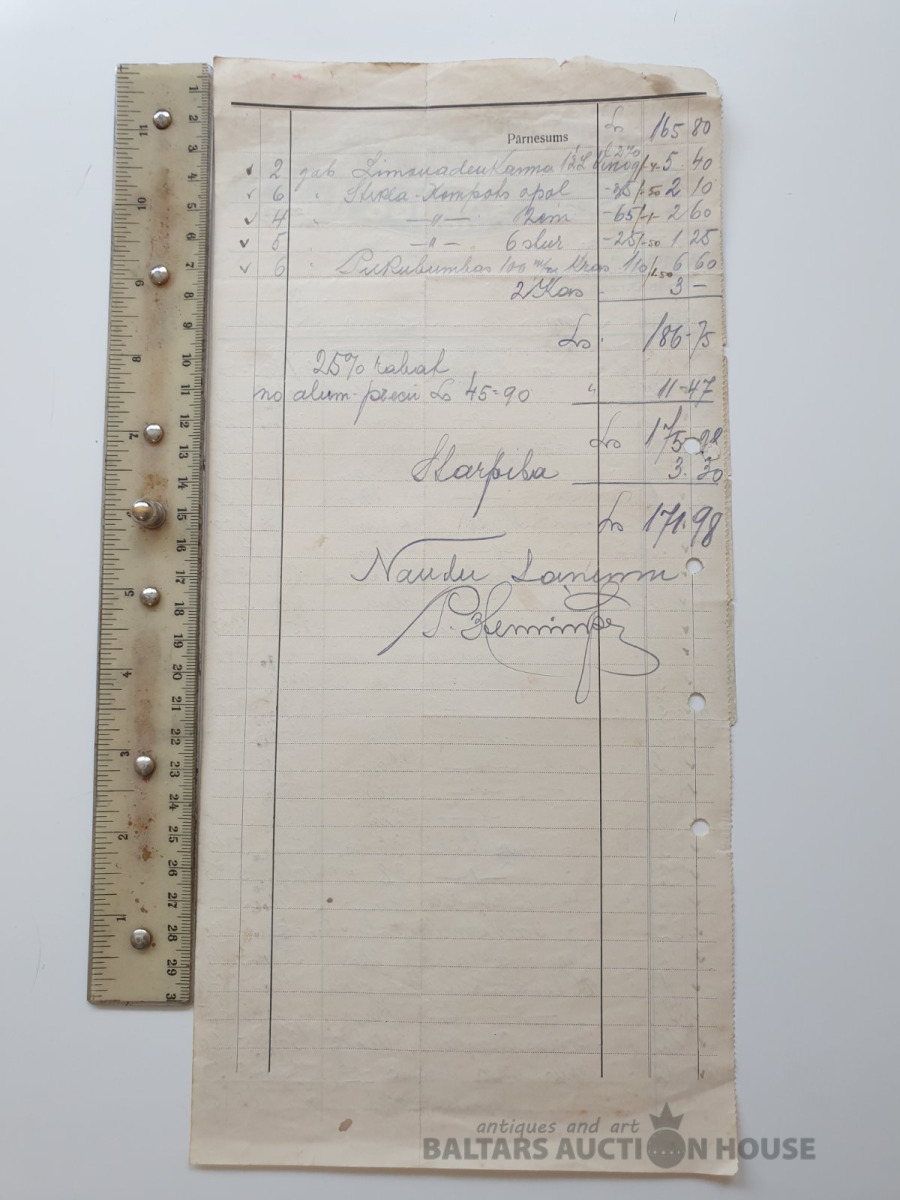 Pārnesums Ls 165 80
2 gab Limonaden Kanna 5 40
6 " Stikla-Kompots opol -35 2 10
4 " —"— 2cm -65 2 60
5 " —"— 6 stur -25 1 25
6 " Pukubumbas 100 m/m Kras 110 6 60
2 Kas 3 —
Ls 186-75
25% rabat
no alum-precii Ls 45=90 " 11-47
Ls 175
Starpība 3.30
Ls 171.98
Naudu saņemu
antiques and art
BALTARS AUCTION HOUSE
1 2 3 4 5 6 7 8 9 10 11 12 13 14 15 16 17 18 19 20 21 22 23 24 25 26 27 28 29
11 10 9 8 7 5 4 3 2 1